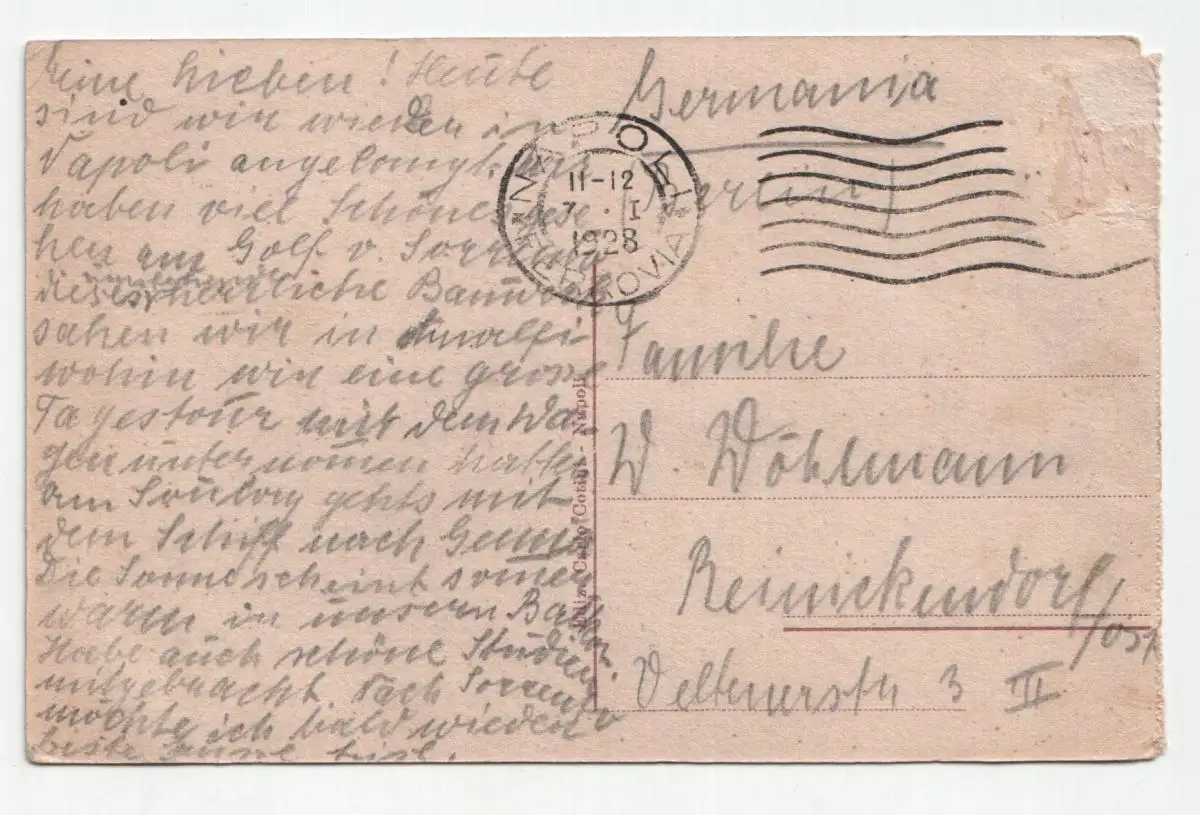 Meine Lieben! Heute
sind wir wieder in
Napoli angelangt. Wir
haben viel Schönes gese
hen am Golf v. Sorrent
dieses herrliche Bauwerk
sahen wir in Amalfi
wohin wir eine grosse
Tagestour mit dem Wa-
gen unternomen hatten
am Sontag gehts mit
dem Schiff nach Genua
Die Sonne scheint somer
warm in unsern
Habe auch schöne Studien
mitgebracht. Nach Sorrent
möchte ich bald wieder
beste Grüsse
Germania
Berlin
NAPOLI
FERROVIA
11-12
7 · I
1928
Ediz. Carlo Cotini - Napoli
Familie
W. Wöhlmann
Reinickendorf/Ost
Veltenerstr 3 III